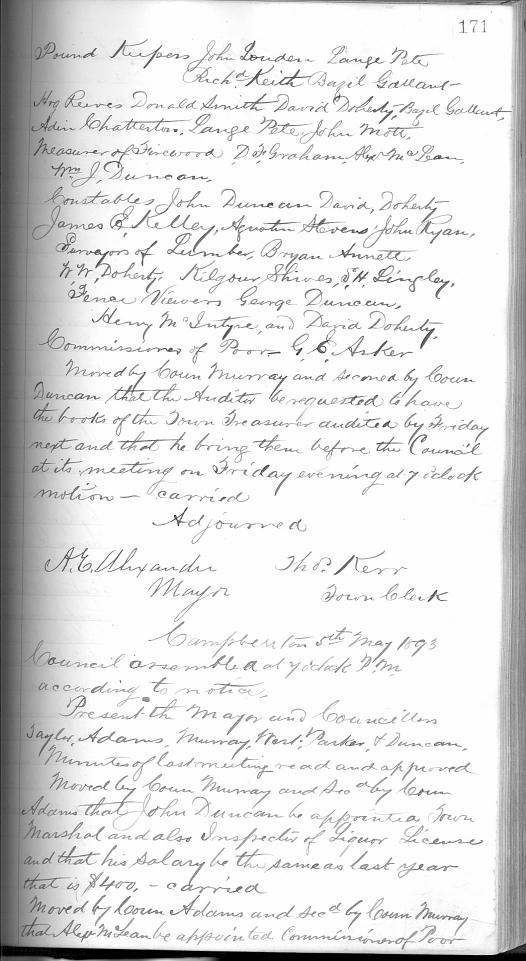 171
Pound Keepers John Louden Lange Pete
Richd Keith Bazil Gallant
Hog Reeves Donald Smith David Doherty, Bazil Gallant,
Adin Chatterton, Lange Pete, John Mott,
Measurer of Firewood D F Graham, Alex McLean,
Wm J. Duncan,
Constables John Duncan David, Doherty
James E Kelley, Agustin Stevens John Ryan,
Surveyors of Lumber, Bryan Annett,
W W, Doherty, Kilgour Shives, S H Lingley,
Fence Viewers George Duncan,
Henry McIntyre, and David Doherty,
Commissioner of Poor G. E, Asker
Moved by Coun Murray and seconed by Coun
Duncan that the Auditor be requested to have
the books of the Town Treasurer audited by Friday
next and that he bring them before the Council
at its meeting on Friday evening at 7 oclock
motion — carried
Adjourned
A. E. Alexander Thos. Kerr
Mayor Town Clerk
Campbellton 5th May 1893
Council assembled at 7 oclock P.M.
according to notice,
Present the Mayor and Councillors
Taylor, Adams, Murray, West, Parker, & Duncan,
Minutes of last meeting read and approved
Moved by Coun Murray and Secd by Coun
Adams that John Duncan be appointed Town
Marshal and also Inspector of Liquor License
and that his salary be the same as last year
that is $400, — carried
Moved by Coun Adams and Secd by Coun Murray
that Alex McLean be appointed Commissioner of Poor